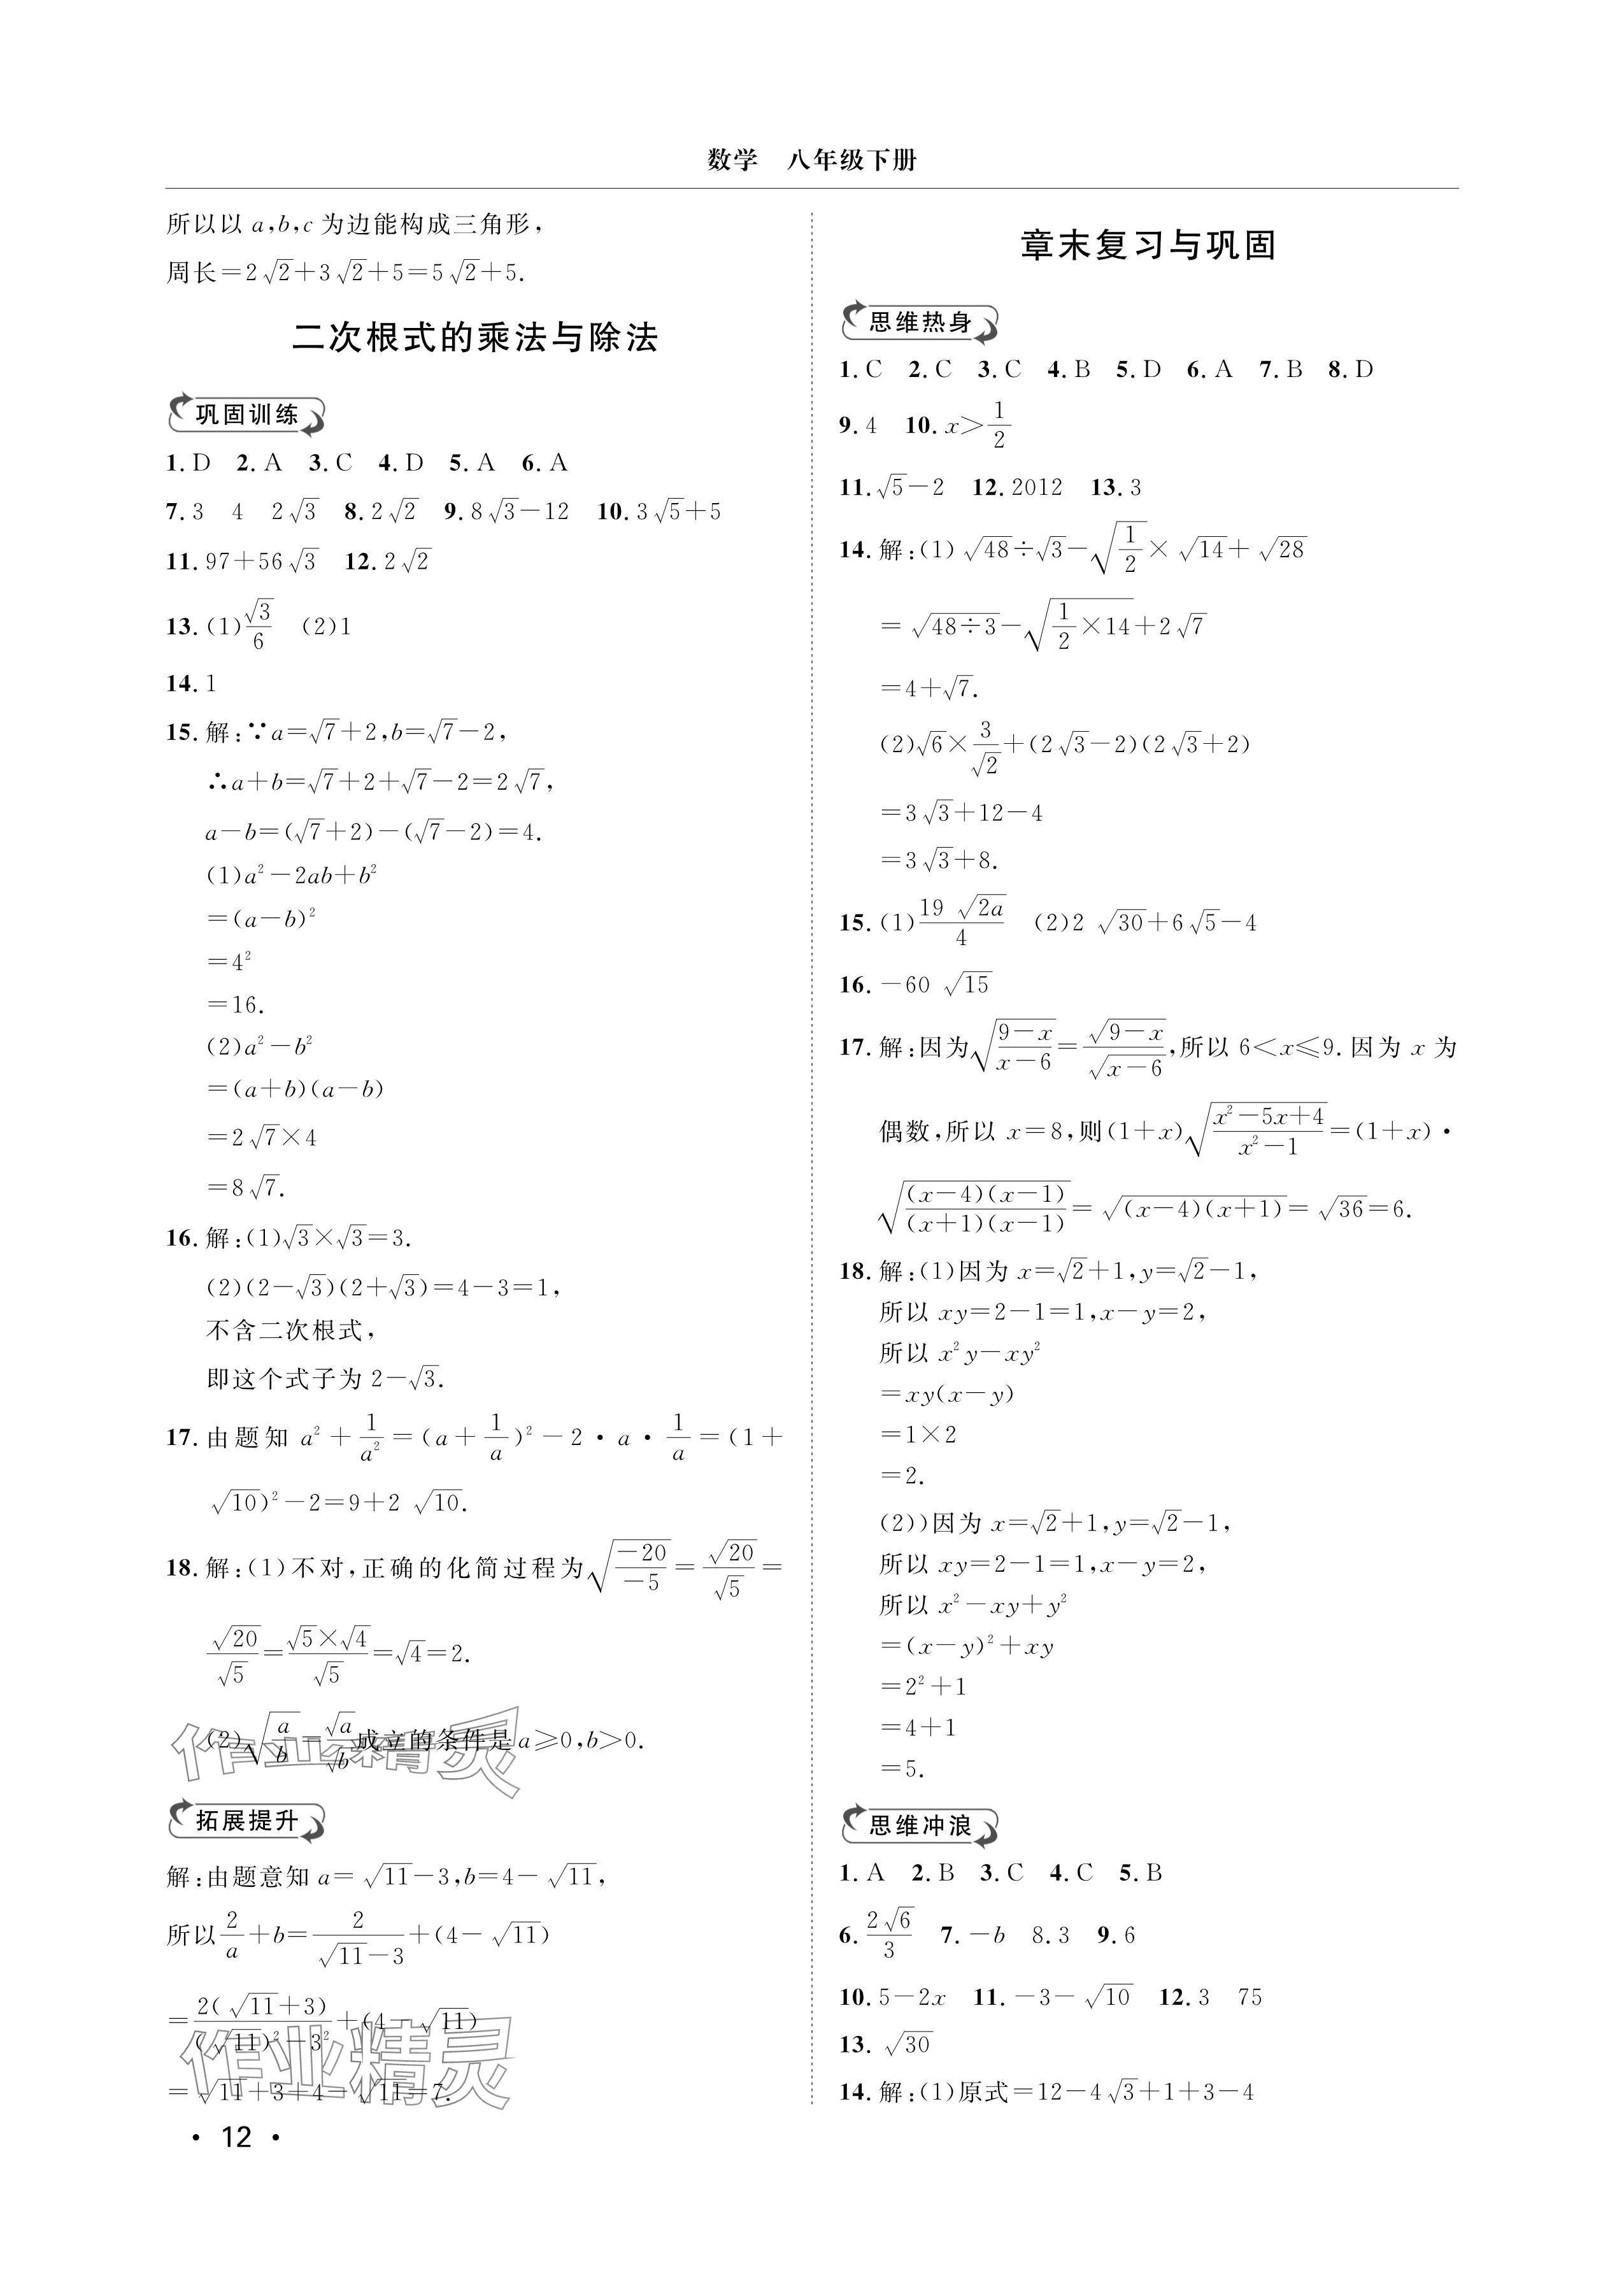 数学　八年级下册
所以以 a,b,c 为边能构成三角形,
周长=2√2+3√2+5=5√2+5.
二次根式的乘法与除法
巩固训练
1. D 2. A 3. C 4. D 5. A 6. A
7. 3 4 2√3 8. 2√2 9. 8√3-12 10. 3√5+5
11. 97+56√3 12. 2√2
13. (1)√3/6 (2)1
14. 1
15. 解:∵a=√7+2,b=√7-2,
∴a+b=√7+2+√7-2=2√7,
a-b=(√7+2)-(√7-2)=4.
(1)a²-2ab+b²
=(a-b)²
=4²
=16.
(2)a²-b²
=(a+b)(a-b)
=2√7×4
=8√7.
16. 解:(1)√3×√3=3.
(2)(2-√3)(2+√3)=4-3=1,
不含二次根式,
即这个式子为 2-√3.
17. 由题知 a²+1/a²=(a+1/a)²-2·a·1/a=(1+
√10)²-2=9+2√10.
18. 解:(1)不对,正确的化简过程为√(-20/-5)=√20/√5=
√20/√5=(√5×√4)/√5=√4=2.
(2)√(a/b)=√a/√b成立的条件是a≥0,b>0.
拓展提升
解:由题意知 a=√11-3,b=4-√11,
所以2/a+b=2/(√11-3)+(4-√11)
=2(√11+3)/((√11)²-3²)+(4-√11)
=√11+3+4-√11=7.
作业精灵
作业精灵
· 12 ·
章末复习与巩固
思维热身
1. C 2. C 3. C 4. B 5. D 6. A 7. B 8. D
9. 4 10. x>1/2
11. √5-2 12. 2012 13. 3
14. 解:(1)√48÷√3-√(1/2)×√14+√28
=√(48÷3)-√(1/2×14)+2√7
=4+√7.
(2)√6×3/√2+(2√3-2)(2√3+2)
=3√3+12-4
=3√3+8.
15. (1)19√(2a)/4 (2)2√30+6√5-4
16. -60√15
17. 解:因为√((9-x)/(x-6))=√(9-x)/√(x-6),所以 6<x≤9. 因为 x 为
偶数,所以 x=8,则(1+x)√((x²-5x+4)/(x²-1))=(1+x)·
√((x-4)(x-1)/((x+1)(x-1)))=√((x-4)(x+1))=√36=6.
18. 解:(1)因为 x=√2+1,y=√2-1,
所以 xy=2-1=1,x-y=2,
所以 x²y-xy²
=xy(x-y)
=1×2
=2.
(2))因为 x=√2+1,y=√2-1,
所以 xy=2-1=1,x-y=2,
所以 x²-xy+y²
=(x-y)²+xy
=2²+1
=4+1
=5.
思维冲浪
1. A 2. B 3. C 4. C 5. B
6. 2√6/3 7. -b 8. 3 9. 6
10. 5-2x 11. -3-√10 12. 3 75
13. √30
14. 解:(1)原式=12-4√3+1+3-4